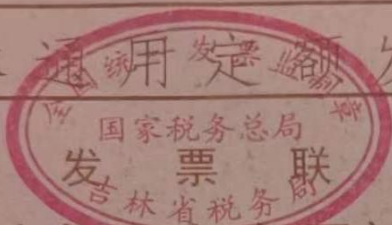 通用定额发
全国统一发票监制章
国家税务总局
发票联
吉林省税务局